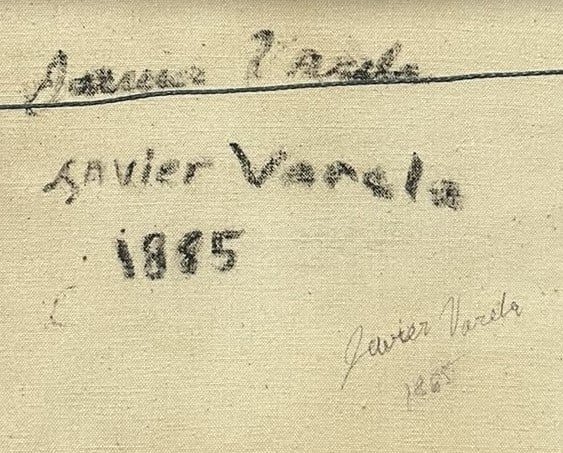 Javier Varela
Javier Varela
1885
Javier Varela
1885